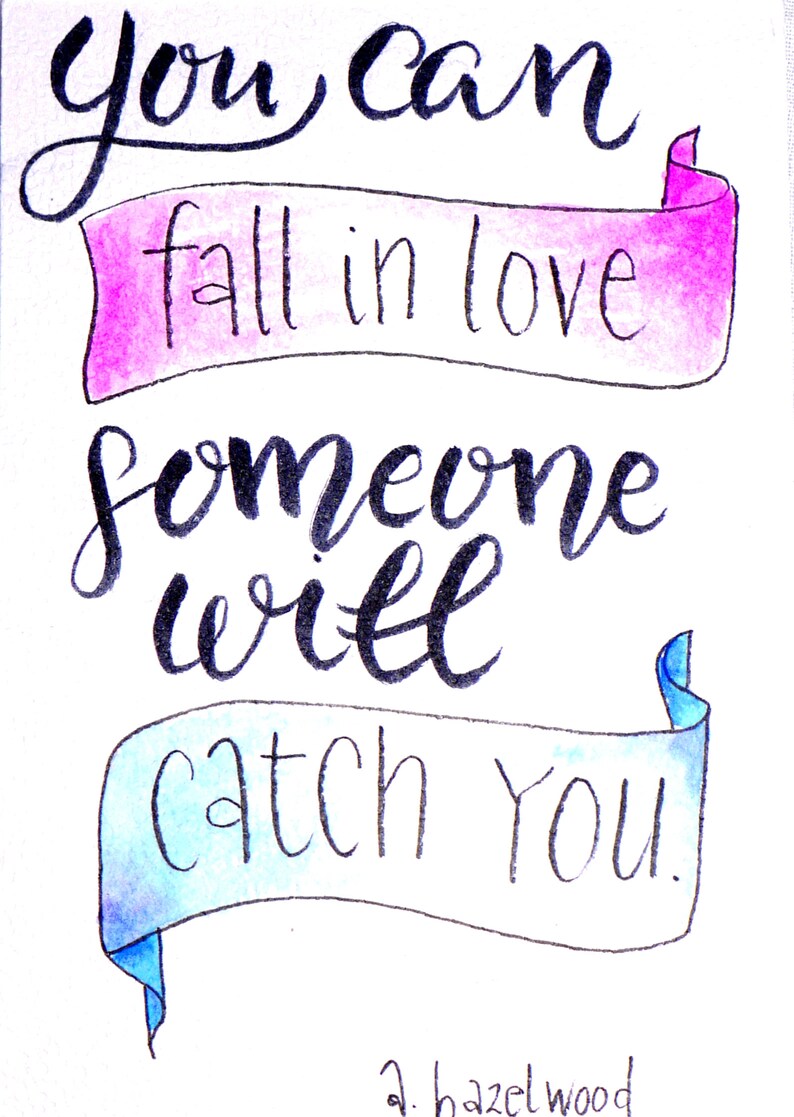 you can
fall in love
someone
will
catch you.
a. hazelwood